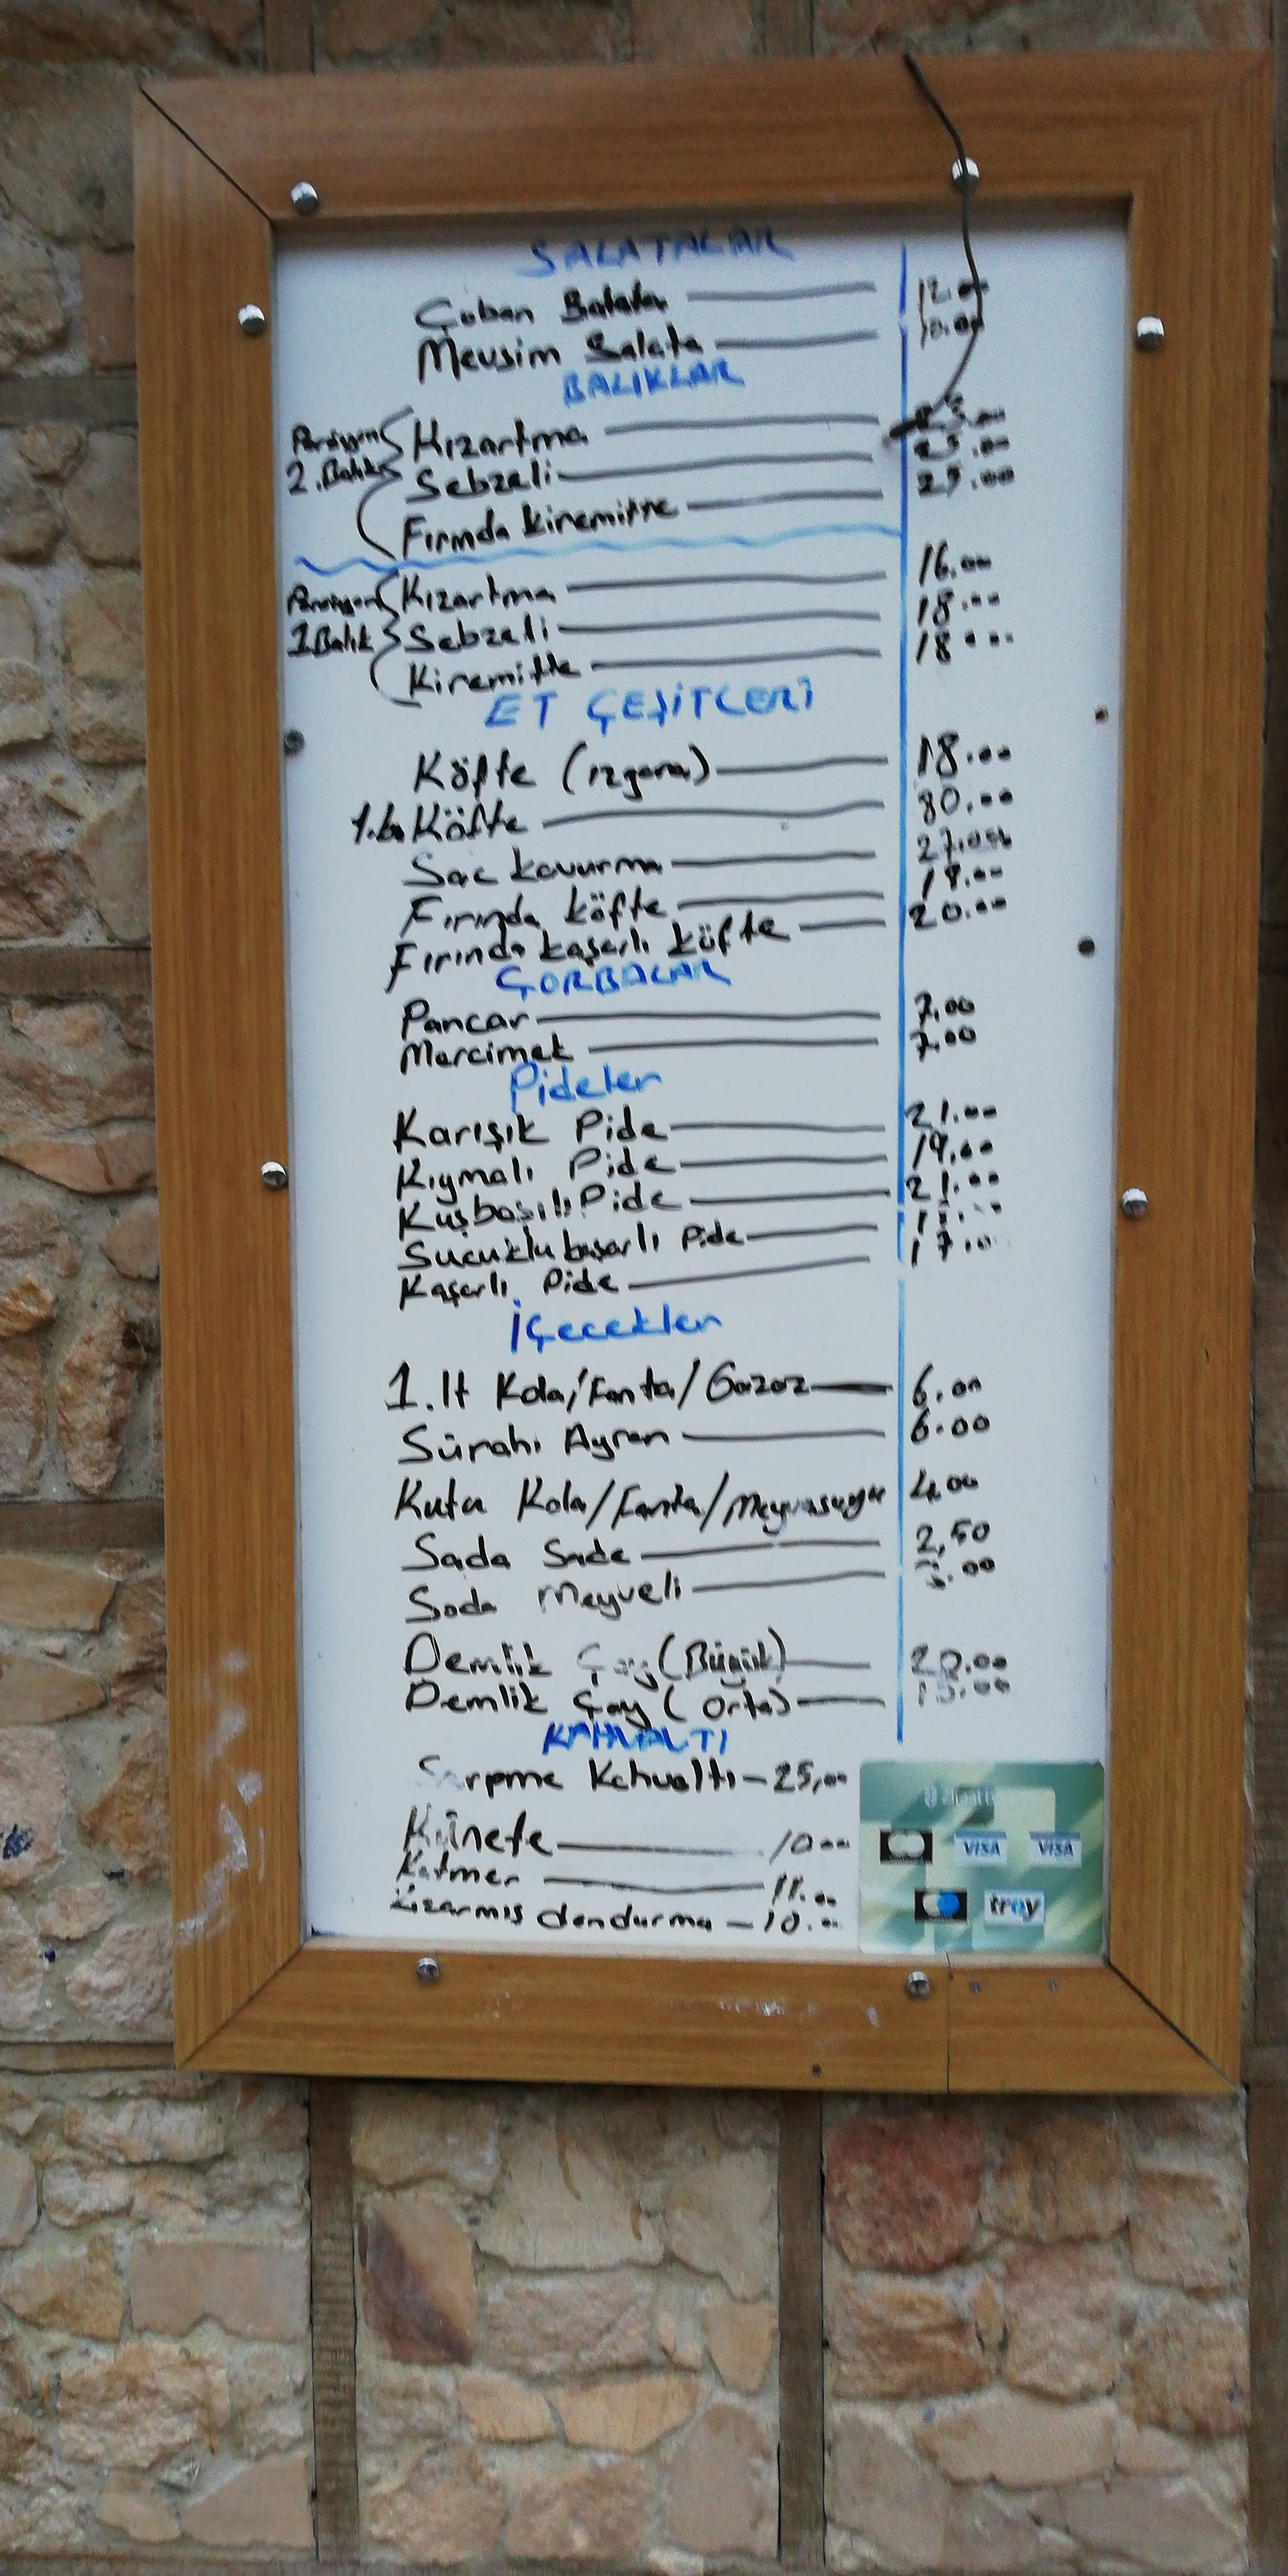 SALATALAR
Çoban Salata 12.00
Mevsim Salata 10.00
BALIKLAR
Porsiyon Kızartma
2.Balık Sebzeli 25.00
Fırında kiremitte 25.00
Porsiyon Kızartma 16.00
1.Balık Sebzeli 18.00
Kiremitte 18.00
ET ÇEŞİTLERİ
Köfte (ızgara) 18.00
Köfte 80.00
Sac kavurma 27.00
Fırında köfte 18.00
Fırında kaşarlı köfte 20.00
ÇORBALAR
Pancar 7.00
Mercimek 7.00
Pideler
Karışık Pide 21.00
Kıymalı Pide 19.00
Kuşbaşılı Pide 21.00
Sucuklu kaşarlı Pide
Kaşarlı Pide 17.00
İçecekler
1.lt Kola/Fanta/Gazoz 6.00
Sürahi Ayran 6.00
Kutu Kola/Fanta/Meyvasuyu 4.00
Sada Sade 2,50
Soda Meyveli 3.00
Demlik Çay (Büyük) 20.00
Demlik Çay (Orta)
KAHVALTI
Serpme Kahvaltı - 25,00
Künefe 10.00
Katmer 11.00
Kızarmış dondurma - 10.00
VISA VISA
troy